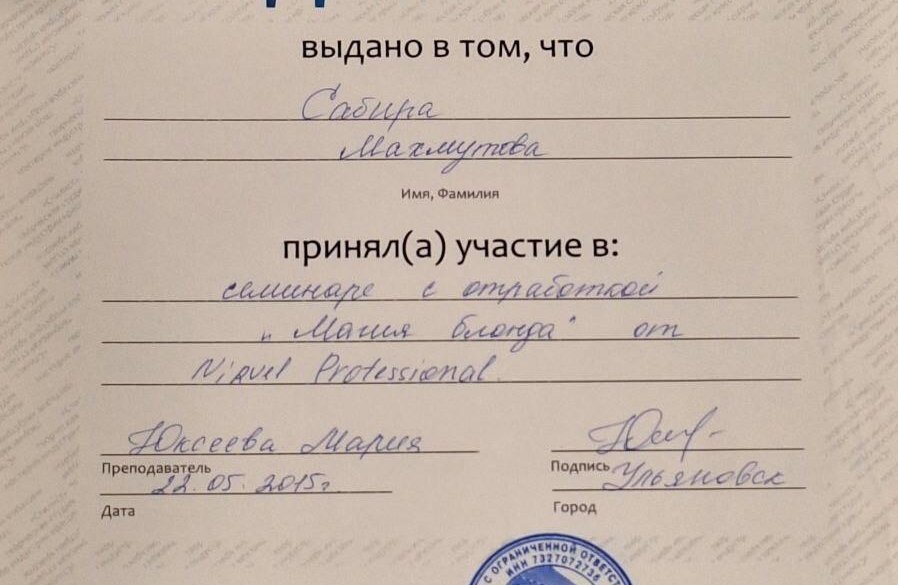 выдано в том, что
Сабира
Махмутова
Имя, Фамилия
принял(а) участие в:
семинаре с отработкой
"Магия блонда" от
Nirvel Professional
Юксеева Мария
Преподаватель
Подпись
22.05.2015г.
Ульяновск
Дата
Город
С ОГРАНИЧЕННОЙ ОТВЕТСТ
ИНН 7327072736